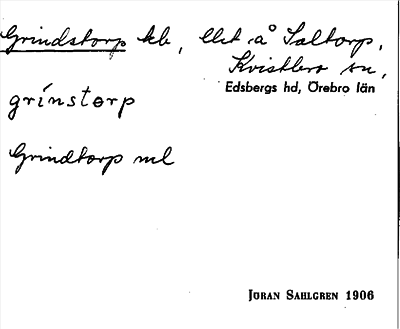 Grindstorp tkb, llit å Saltorp,
Kvistbro sn,
Edsbergs hd, Örebro län
grinstørp
Grindtorp ml
JÖRAN SAHLGREN 1906